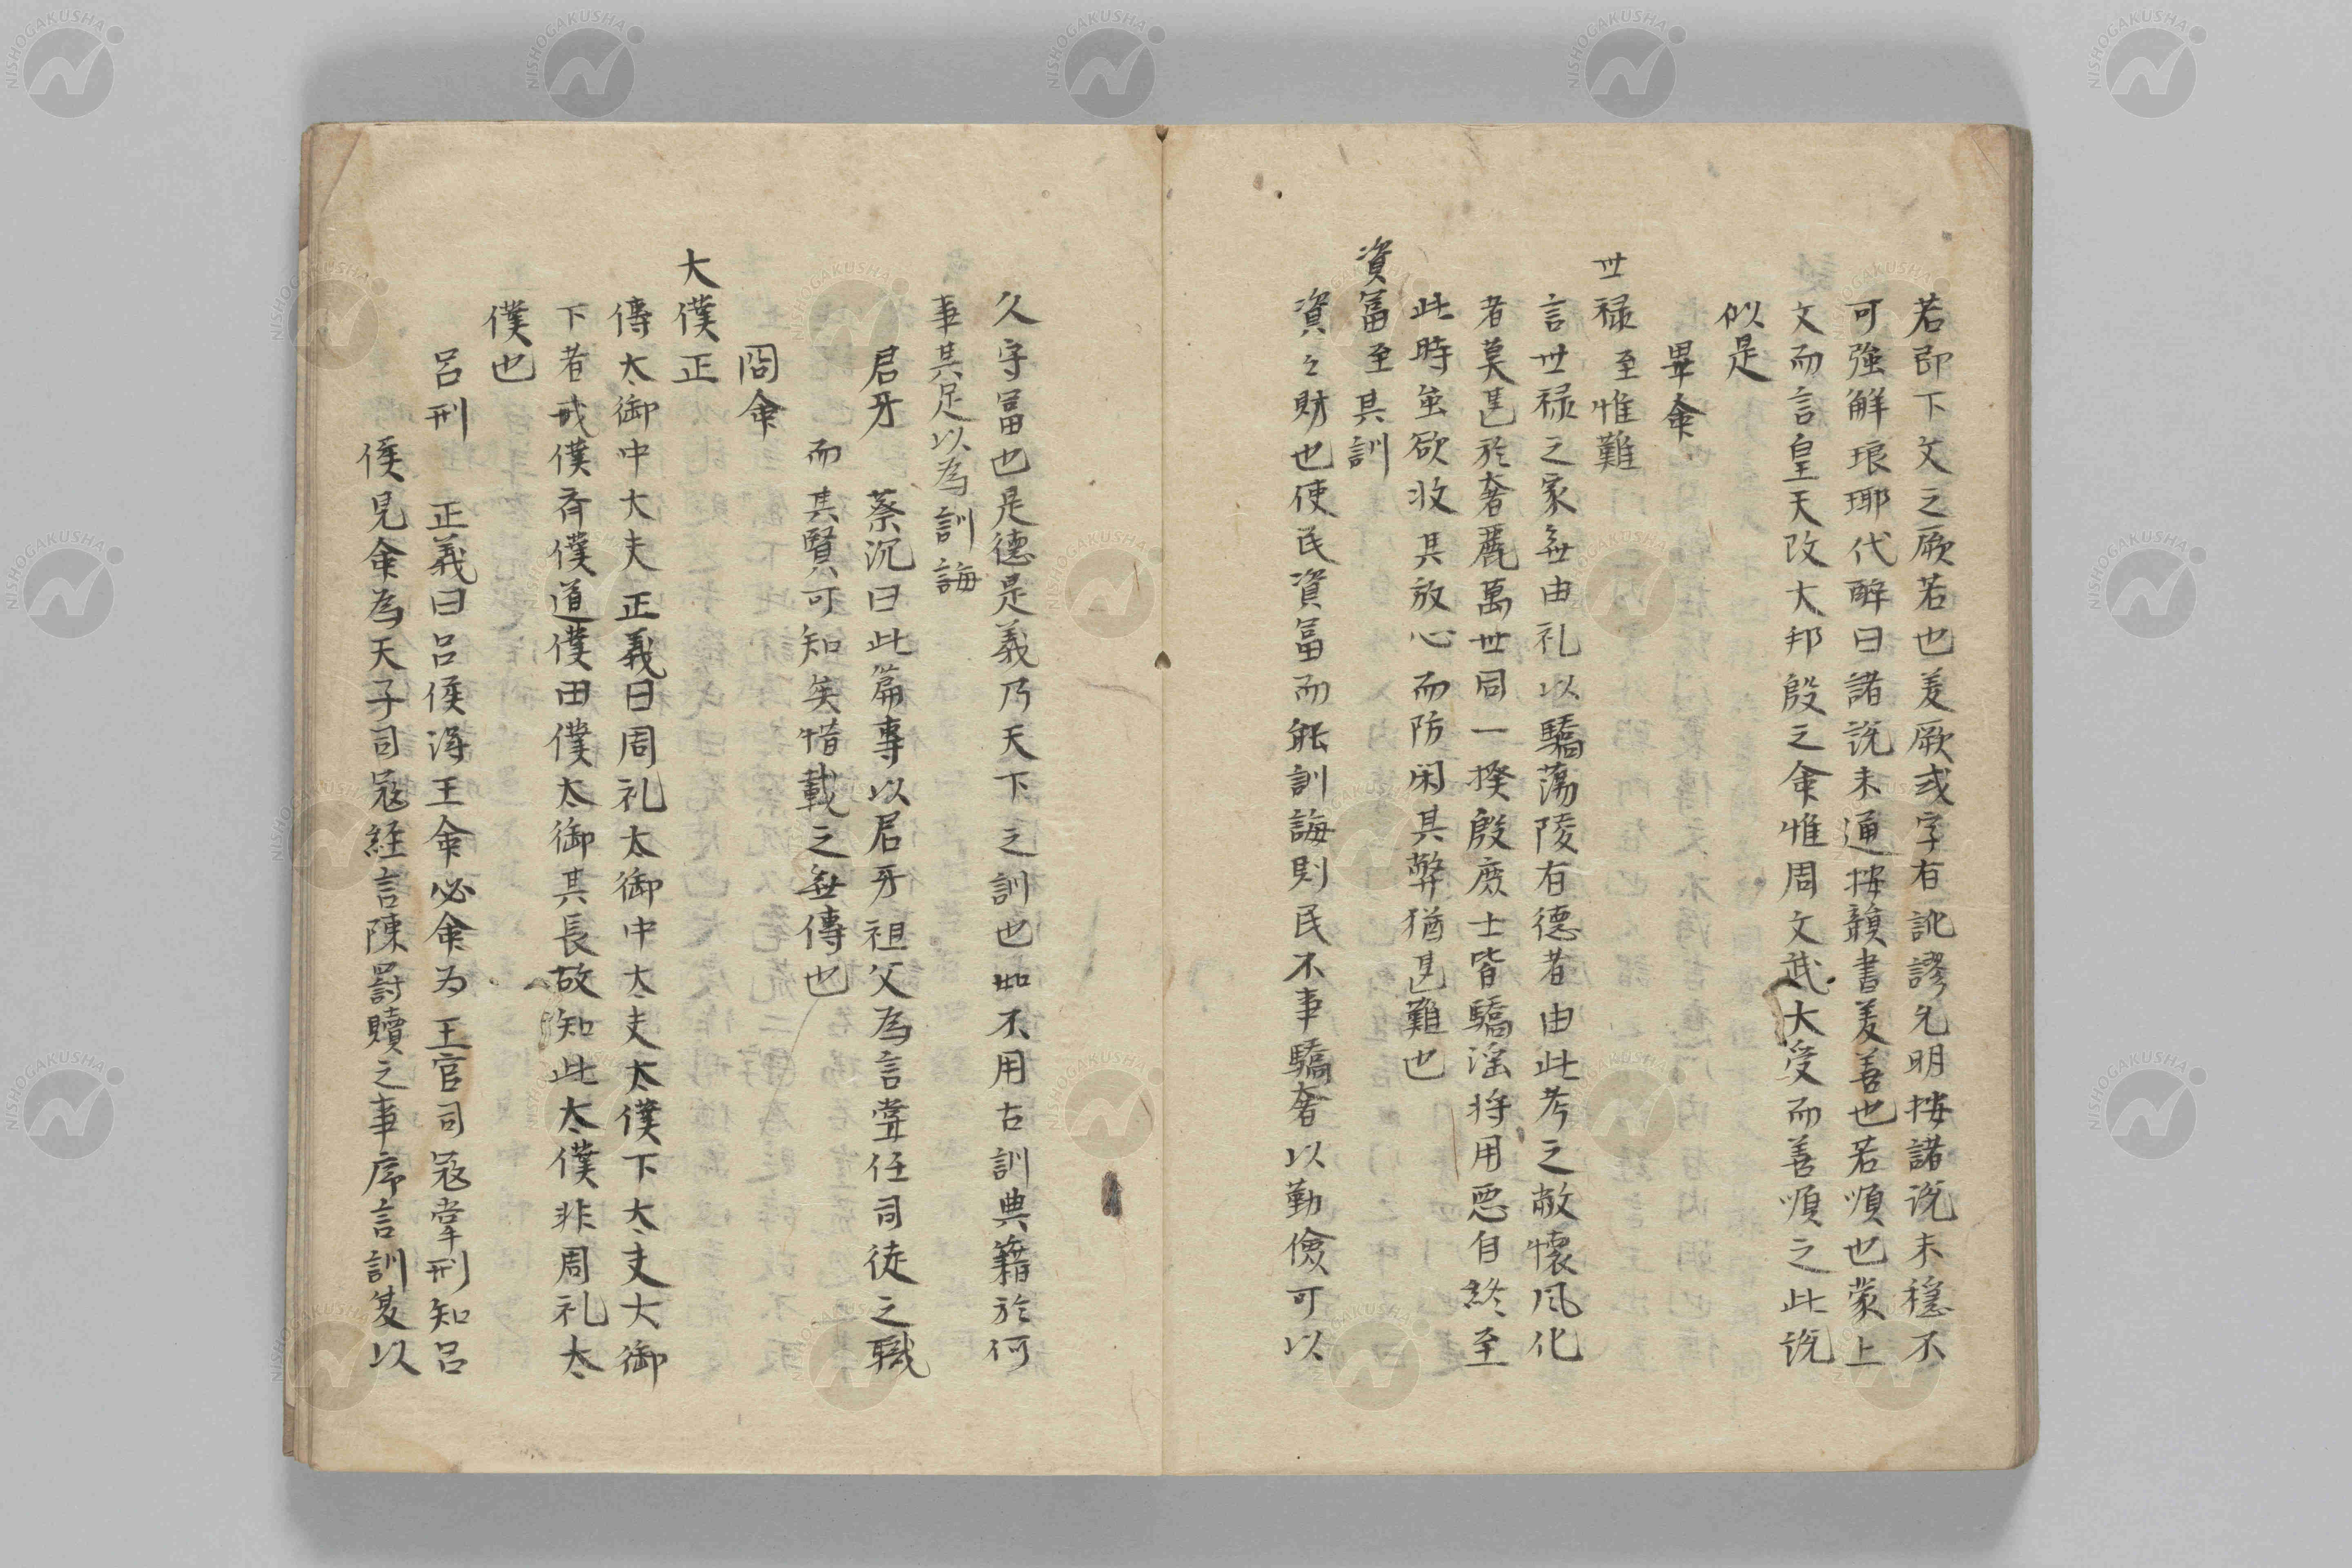 若即下文之厥若也羑厥或字有訛謬先明按諸說未穏不
可強解琅耶代醉曰諸説未通按韻書羑善也若順也蒙上
文而言皇天改大邦殷之命惟周文武大受而善順之此説
似是
畢命
世禄至惟難
言世禄之家無由礼以驕蕩陵有德者由此考之敝懷風化
者莫甚於奢麗萬世同一揆殷庶士皆驕淫将用惡自終至
此時並欲收其放心而防闲其弊猶甚難也
資冨至其訓
資之財也使民資冨而能訓誨則民不事驕奢以勤儉可以
久守冨也是德是義乃天下之訓也如不用古訓典籍於何
事其足以為訓誨
君牙 蔡沉曰此篇專以君牙祖父為言堂任司徒之職
而其賢可知矣惜載之無傳也
冏命
大僕正
傳太御中大夫正義曰周礼太御中大夫太僕下大夫大御
下者戒僕斉僕道僕田僕太御其長故知此太僕非周礼太
僕也
呂刑 正義曰呂侯得王命必命为王官司冦掌刑知呂
侯見命為天子司冦経言陳罸贖之事序言訓夏以
NISHOGAKUSHA